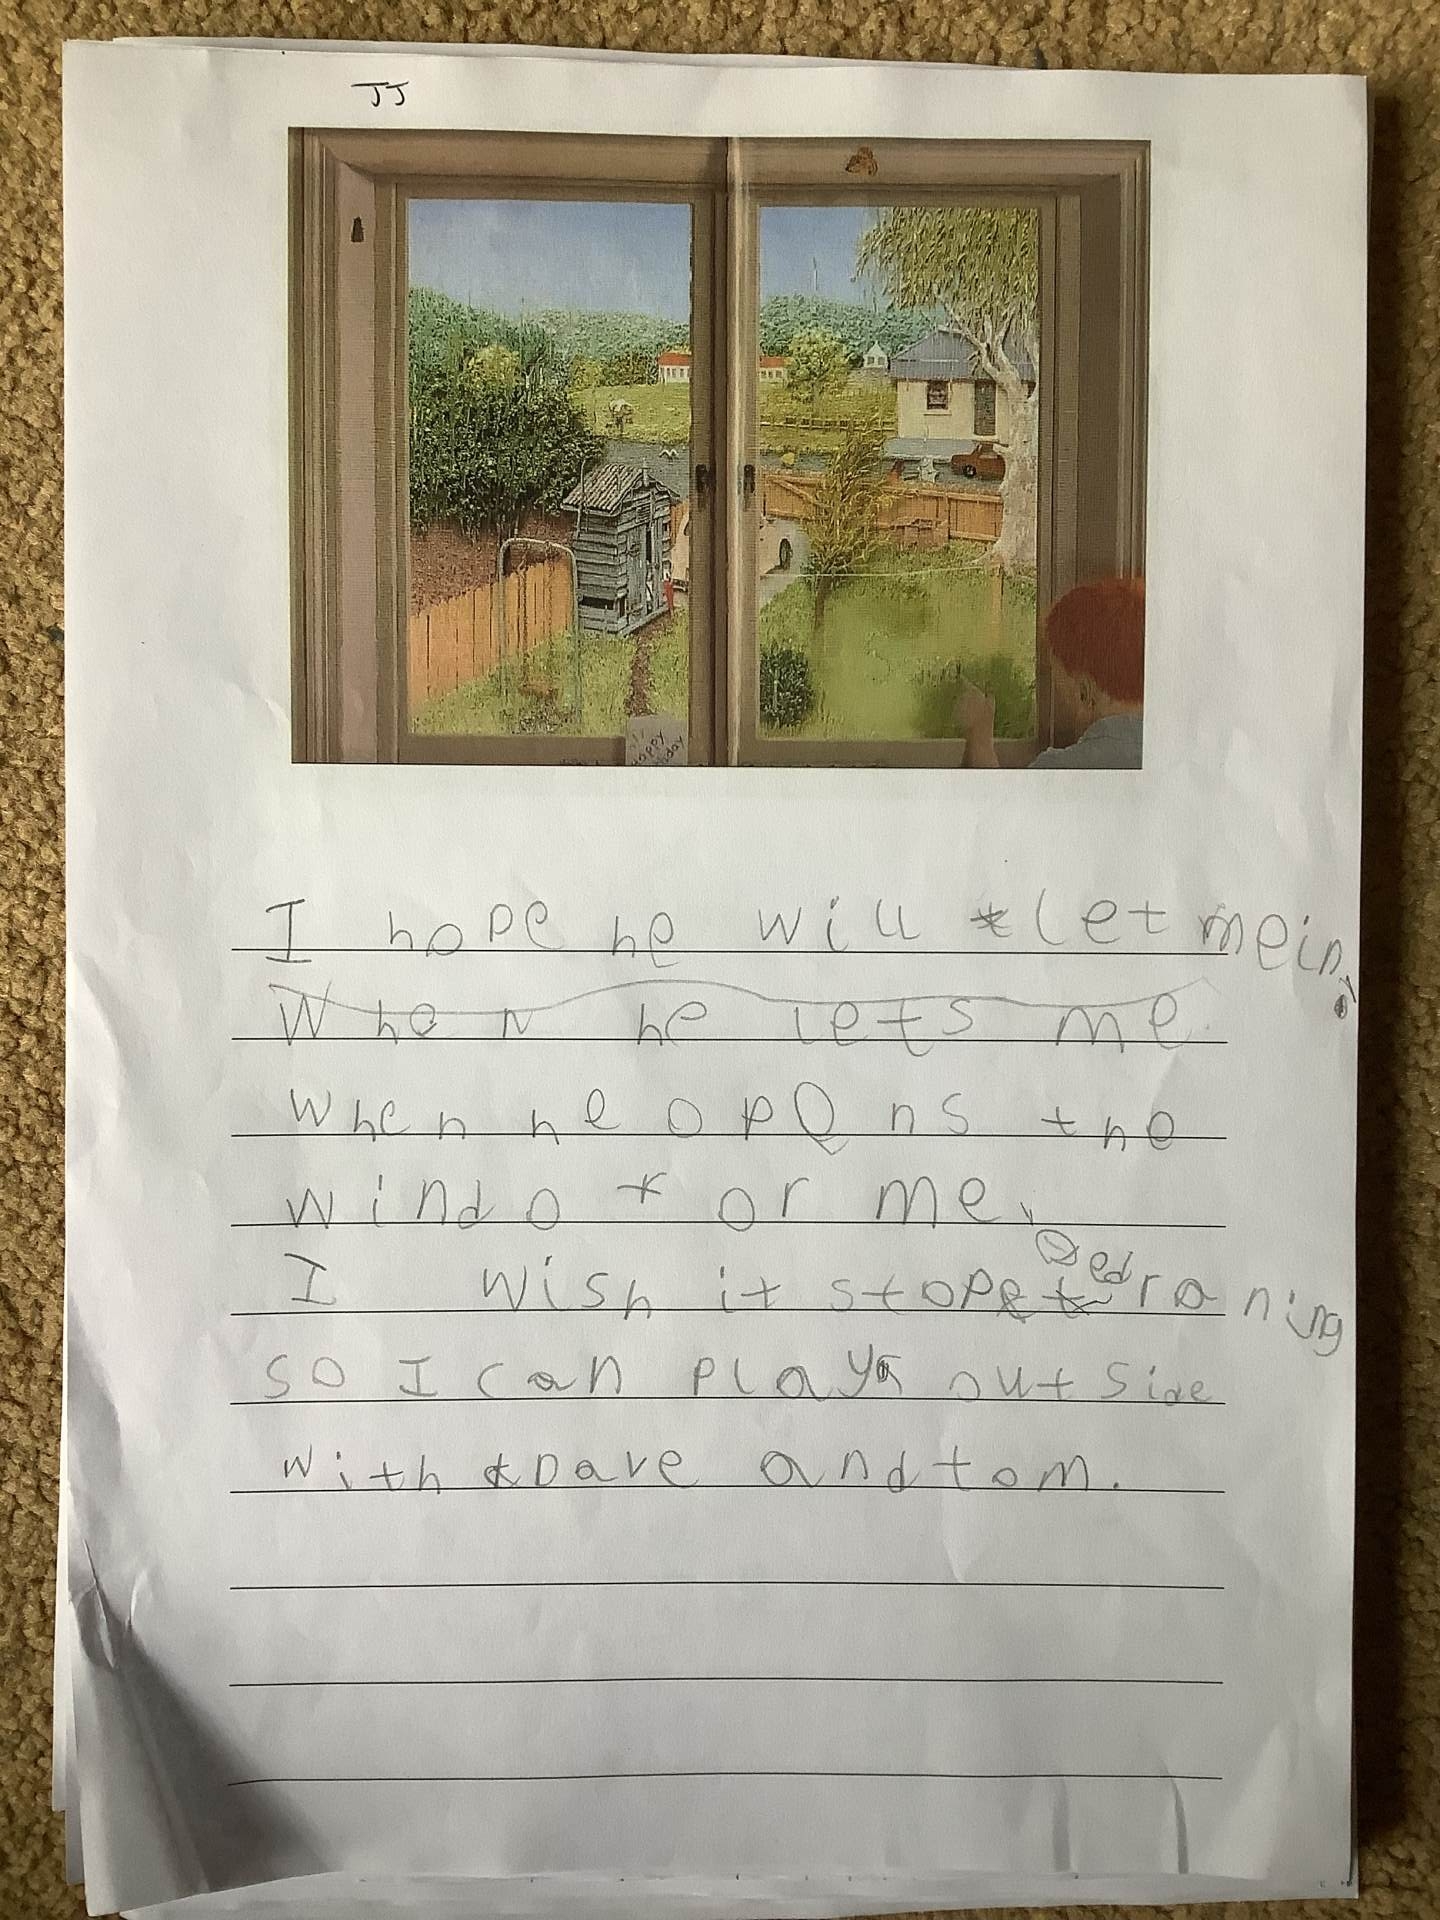 JJ
Happy
I hope he will let me in.
When he lets me
When he opens the
windo for me.
I wish it stoped raning
so I can play out side
with Dave and tom.